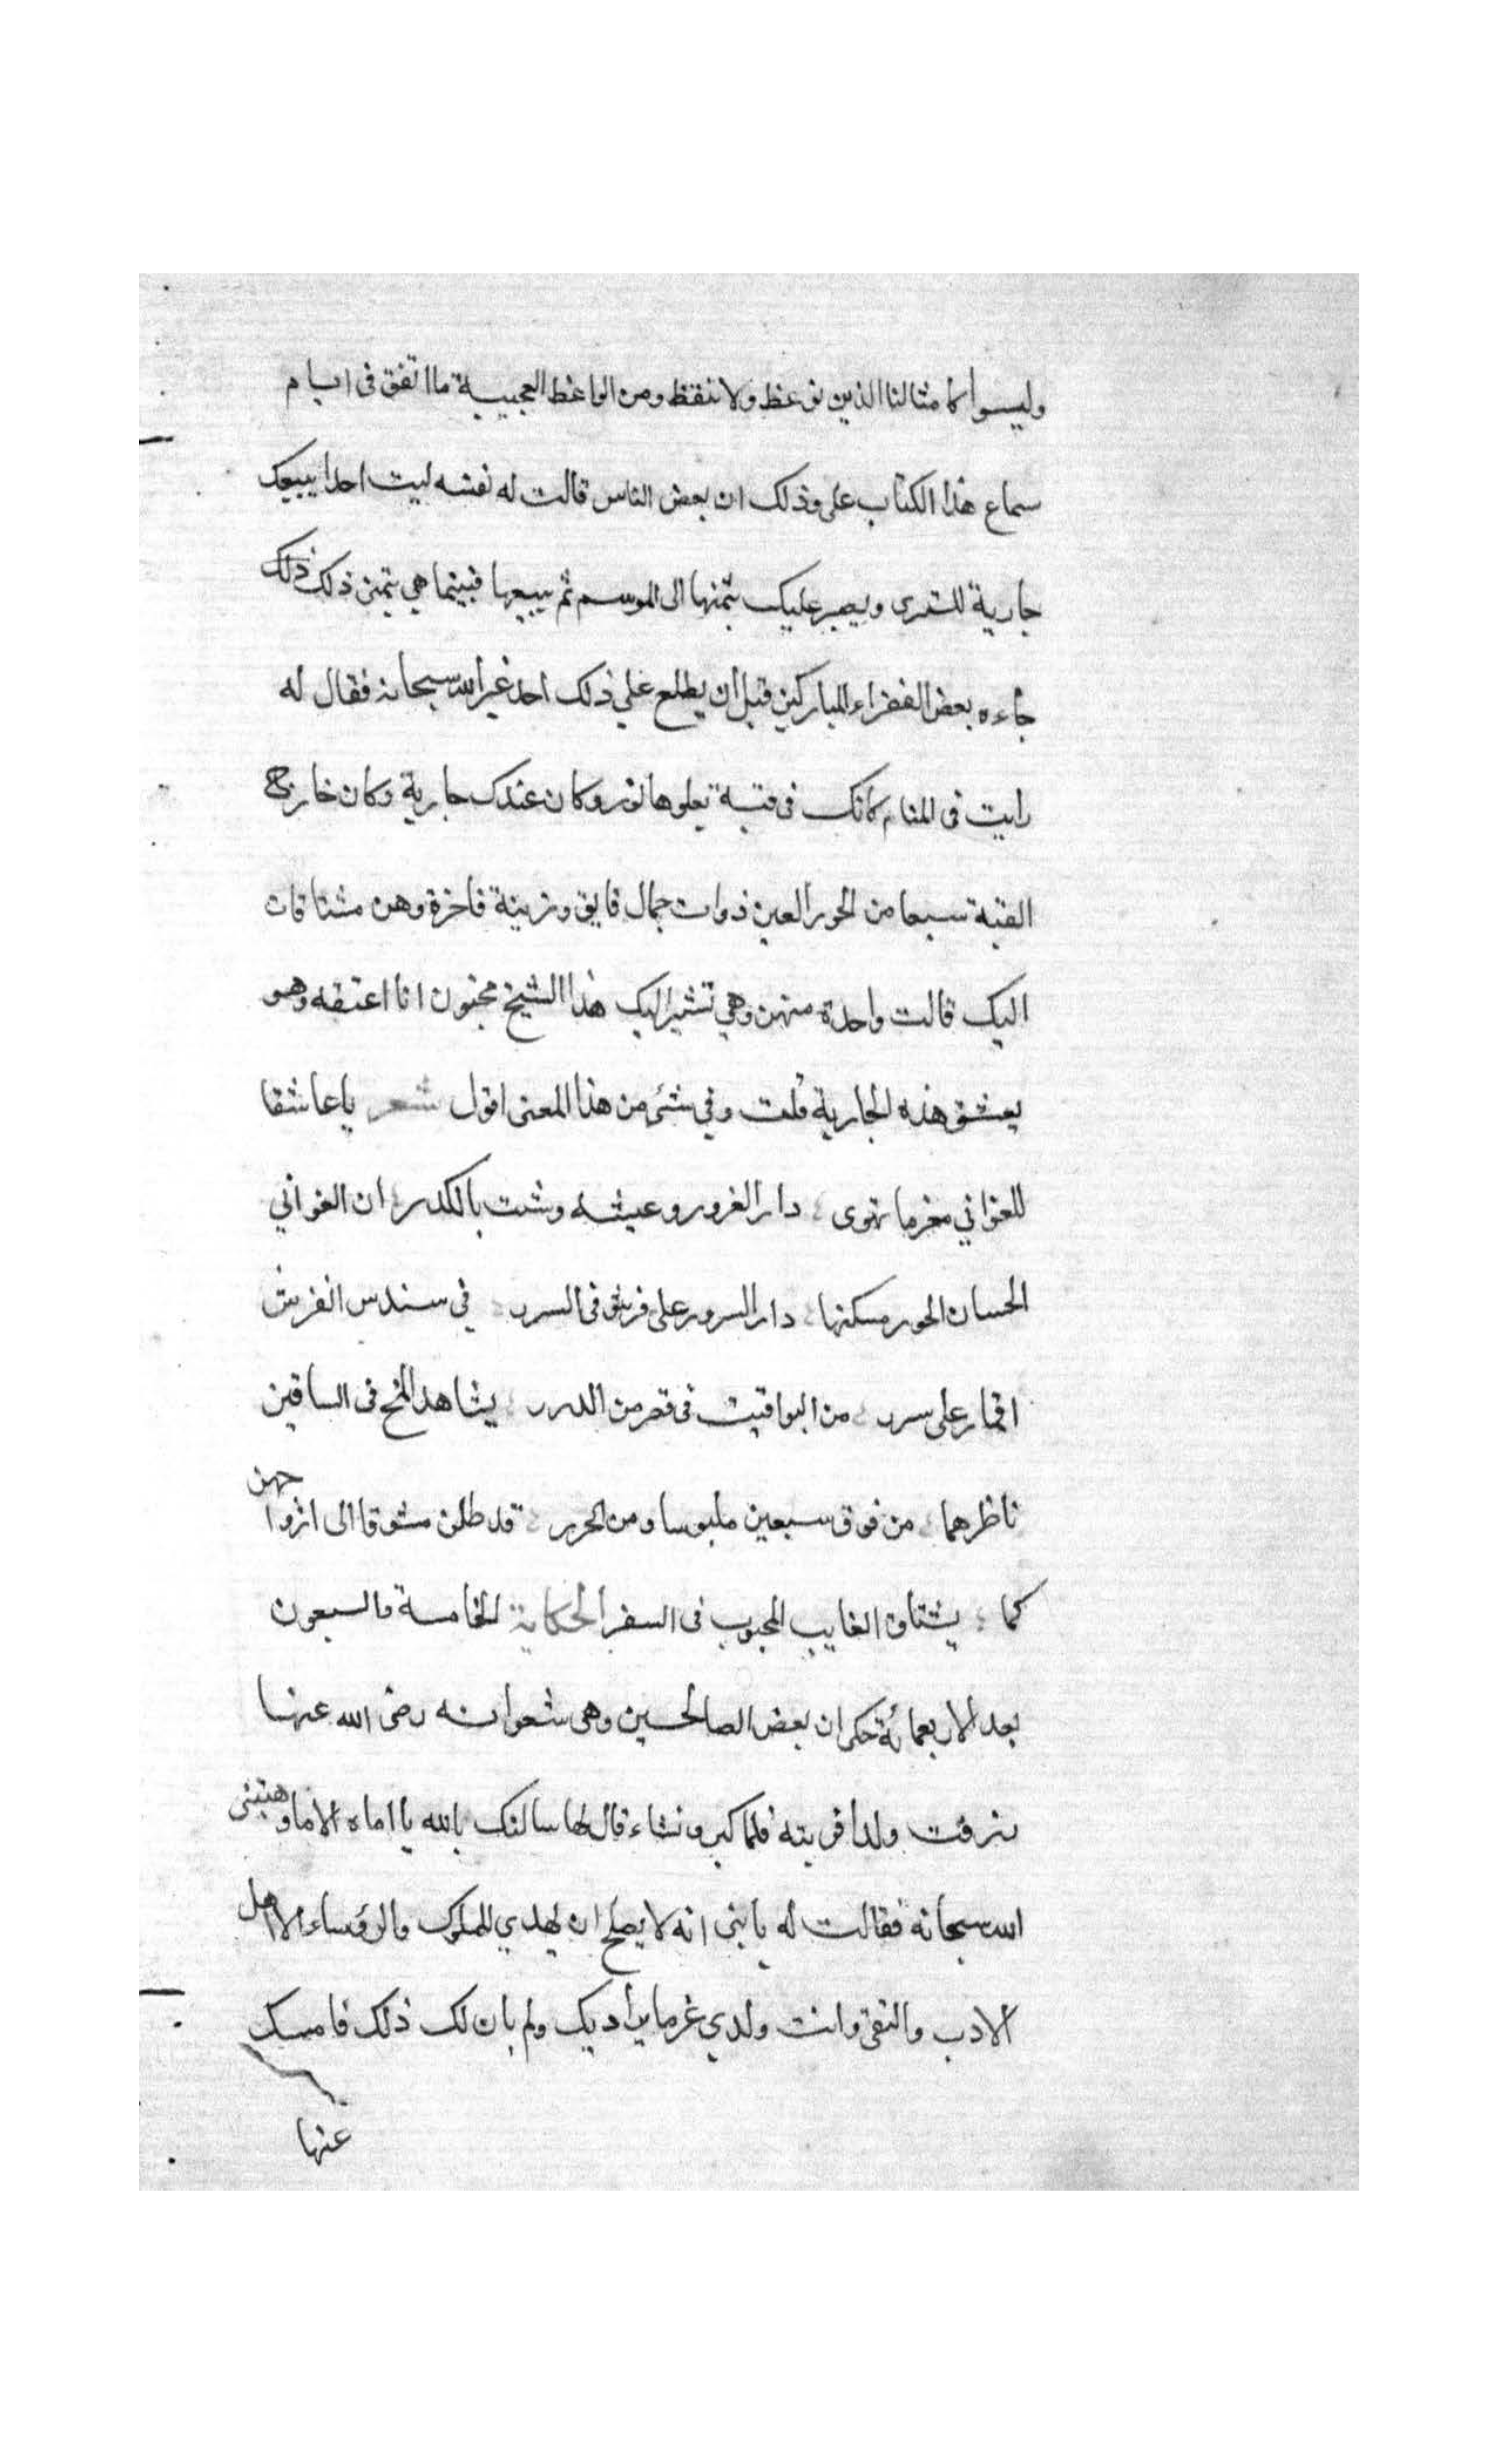 وليسوا كامثالنا الذين نوعظ ولا نتقظ ومن الواعظ العجيبة ما اتفق فى ايام
سماع هذا الكتاب على وذلك ان بعض الناس قالت له نفسه ليت احدا يبيعك
جارية للتسرى ويصبر عليك بثمنها الى الموسم ثم يبيعها فبينما هي تتمنى ذلك ذلك
جاءه بعض الفقراء المباركين قبل ان يطلع علي ذلك احد غير الله سبحانه فقال له
رايت فى المنام كانك فى قبة تعلوها نور وكان عندك جارية وكان خارج
القبة سبعا من الحور العين ذوات جمال فايق وزينة فاخرة وهن مشتاقات
اليك قالت واحدة منهن وهي تشير اليك هذا الشيخ مجنون انا اعشقه وهو
يعشق هذه الجارية قلت وفي شئ من هذا المعنى اقول شعر يا عاشقا
للغواني مغرما تهوى دار الغرور وعيشه وشت بالكدر ان الغواني
الحسان الحور مسكنها دار السرور على فرش فى السرر في سندس الفرش
اقمار على سرر من اليواقيت فى قصر من الدرر يشاهد المخ فى الساقين
ناظرهما من فوق سبعين ملبوسا ومن الحرير قد ظلن مشوقا الى ازواجهن
كما يشتاق الغايب المحبوب فى السفر الحكاية الخامسة والسبعون
بعد الاربعمائة حكى ان بعض الصالحين وهى شعوانه رضى الله عنها
رزقت ولدا فربته فلما كبر ونشاء قال لها سالتك بالله يا اماه الاما وهبتنى
الله سبحانه فقالت له يا بنى انه لا يصلح ان يهدي للملوك والرؤساء الا اهل
الادب والتقى وانت ولدي غر ما يراد بك ولم يان لك ذلك فامسك
عنها